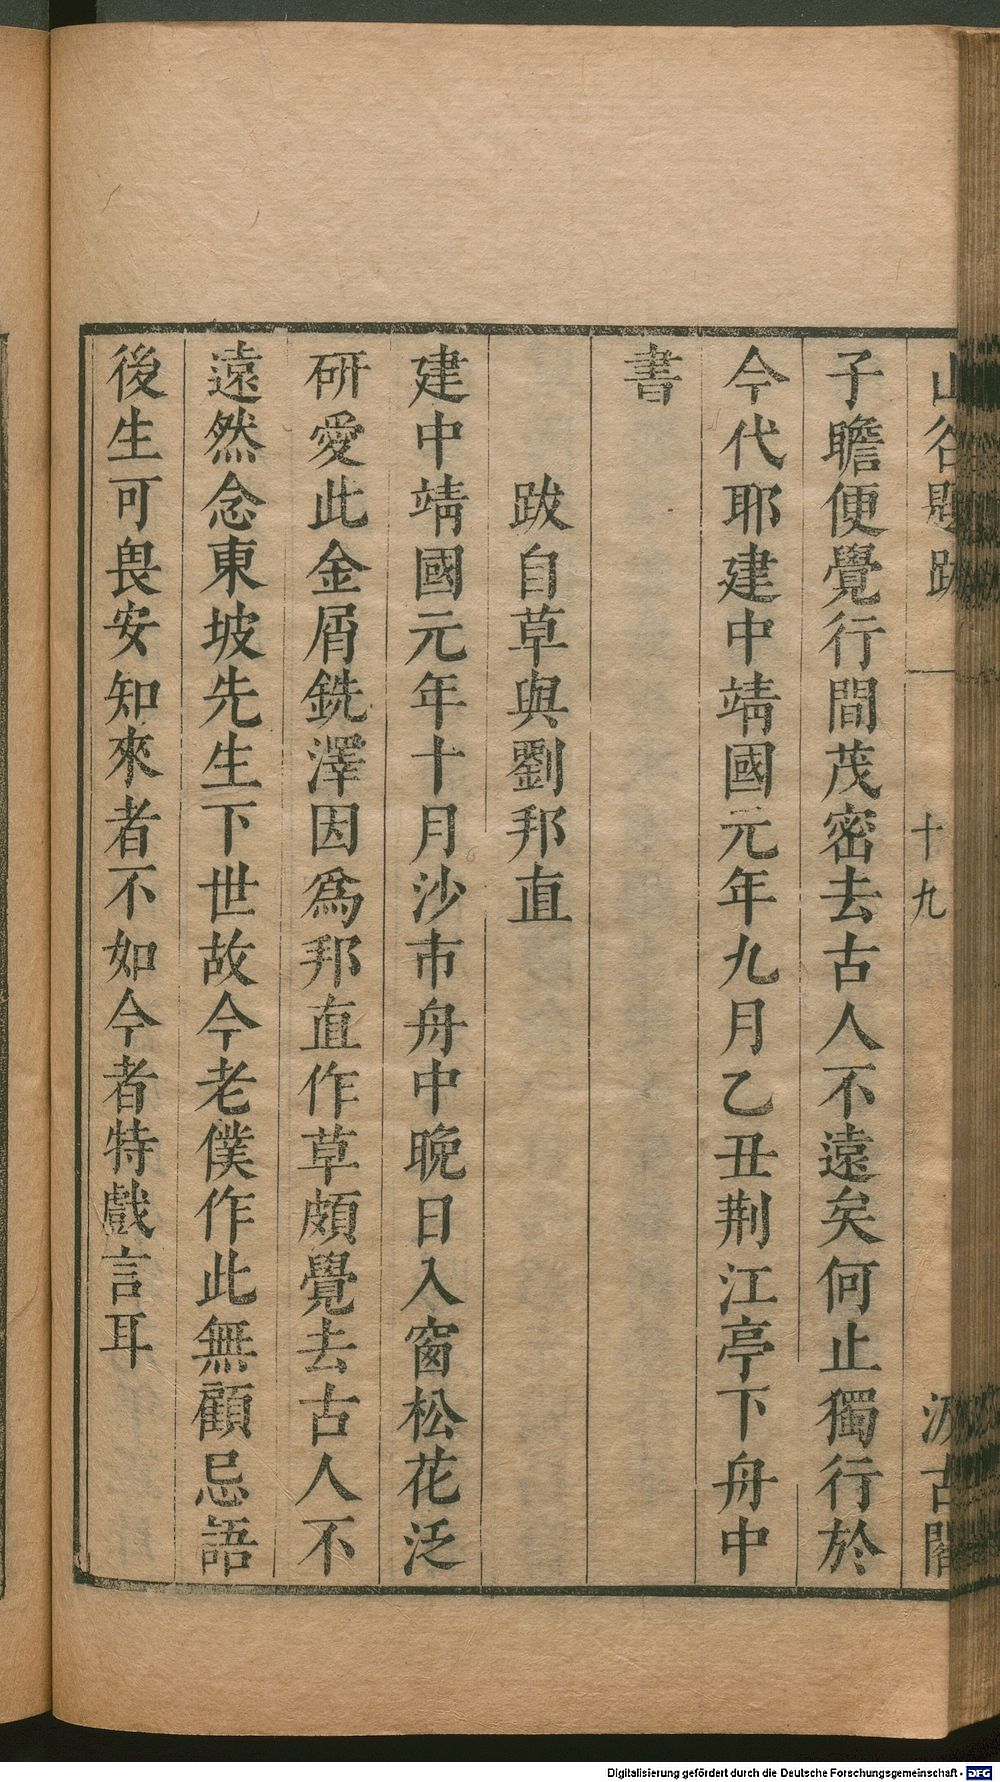 山谷題跋
十九
汲古閣
子瞻便覺行間茂密去古人不遠矣何止獨行於
今代耶建中靖國元年九月乙丑荆江亭下舟中
書
跋自草與劉邦直
建中靖國元年十月沙市舟中晚日入窗松花泛
研愛此金屑銑澤因爲邦直作草頗覺去古人不
遠然念東坡先生下世故今老僕作此無顧忌語
後生可畏安知來者不如今者特戲言耳
Digitalisierung gefördert durch die Deutsche Forschungsgemeinschaft - DFG